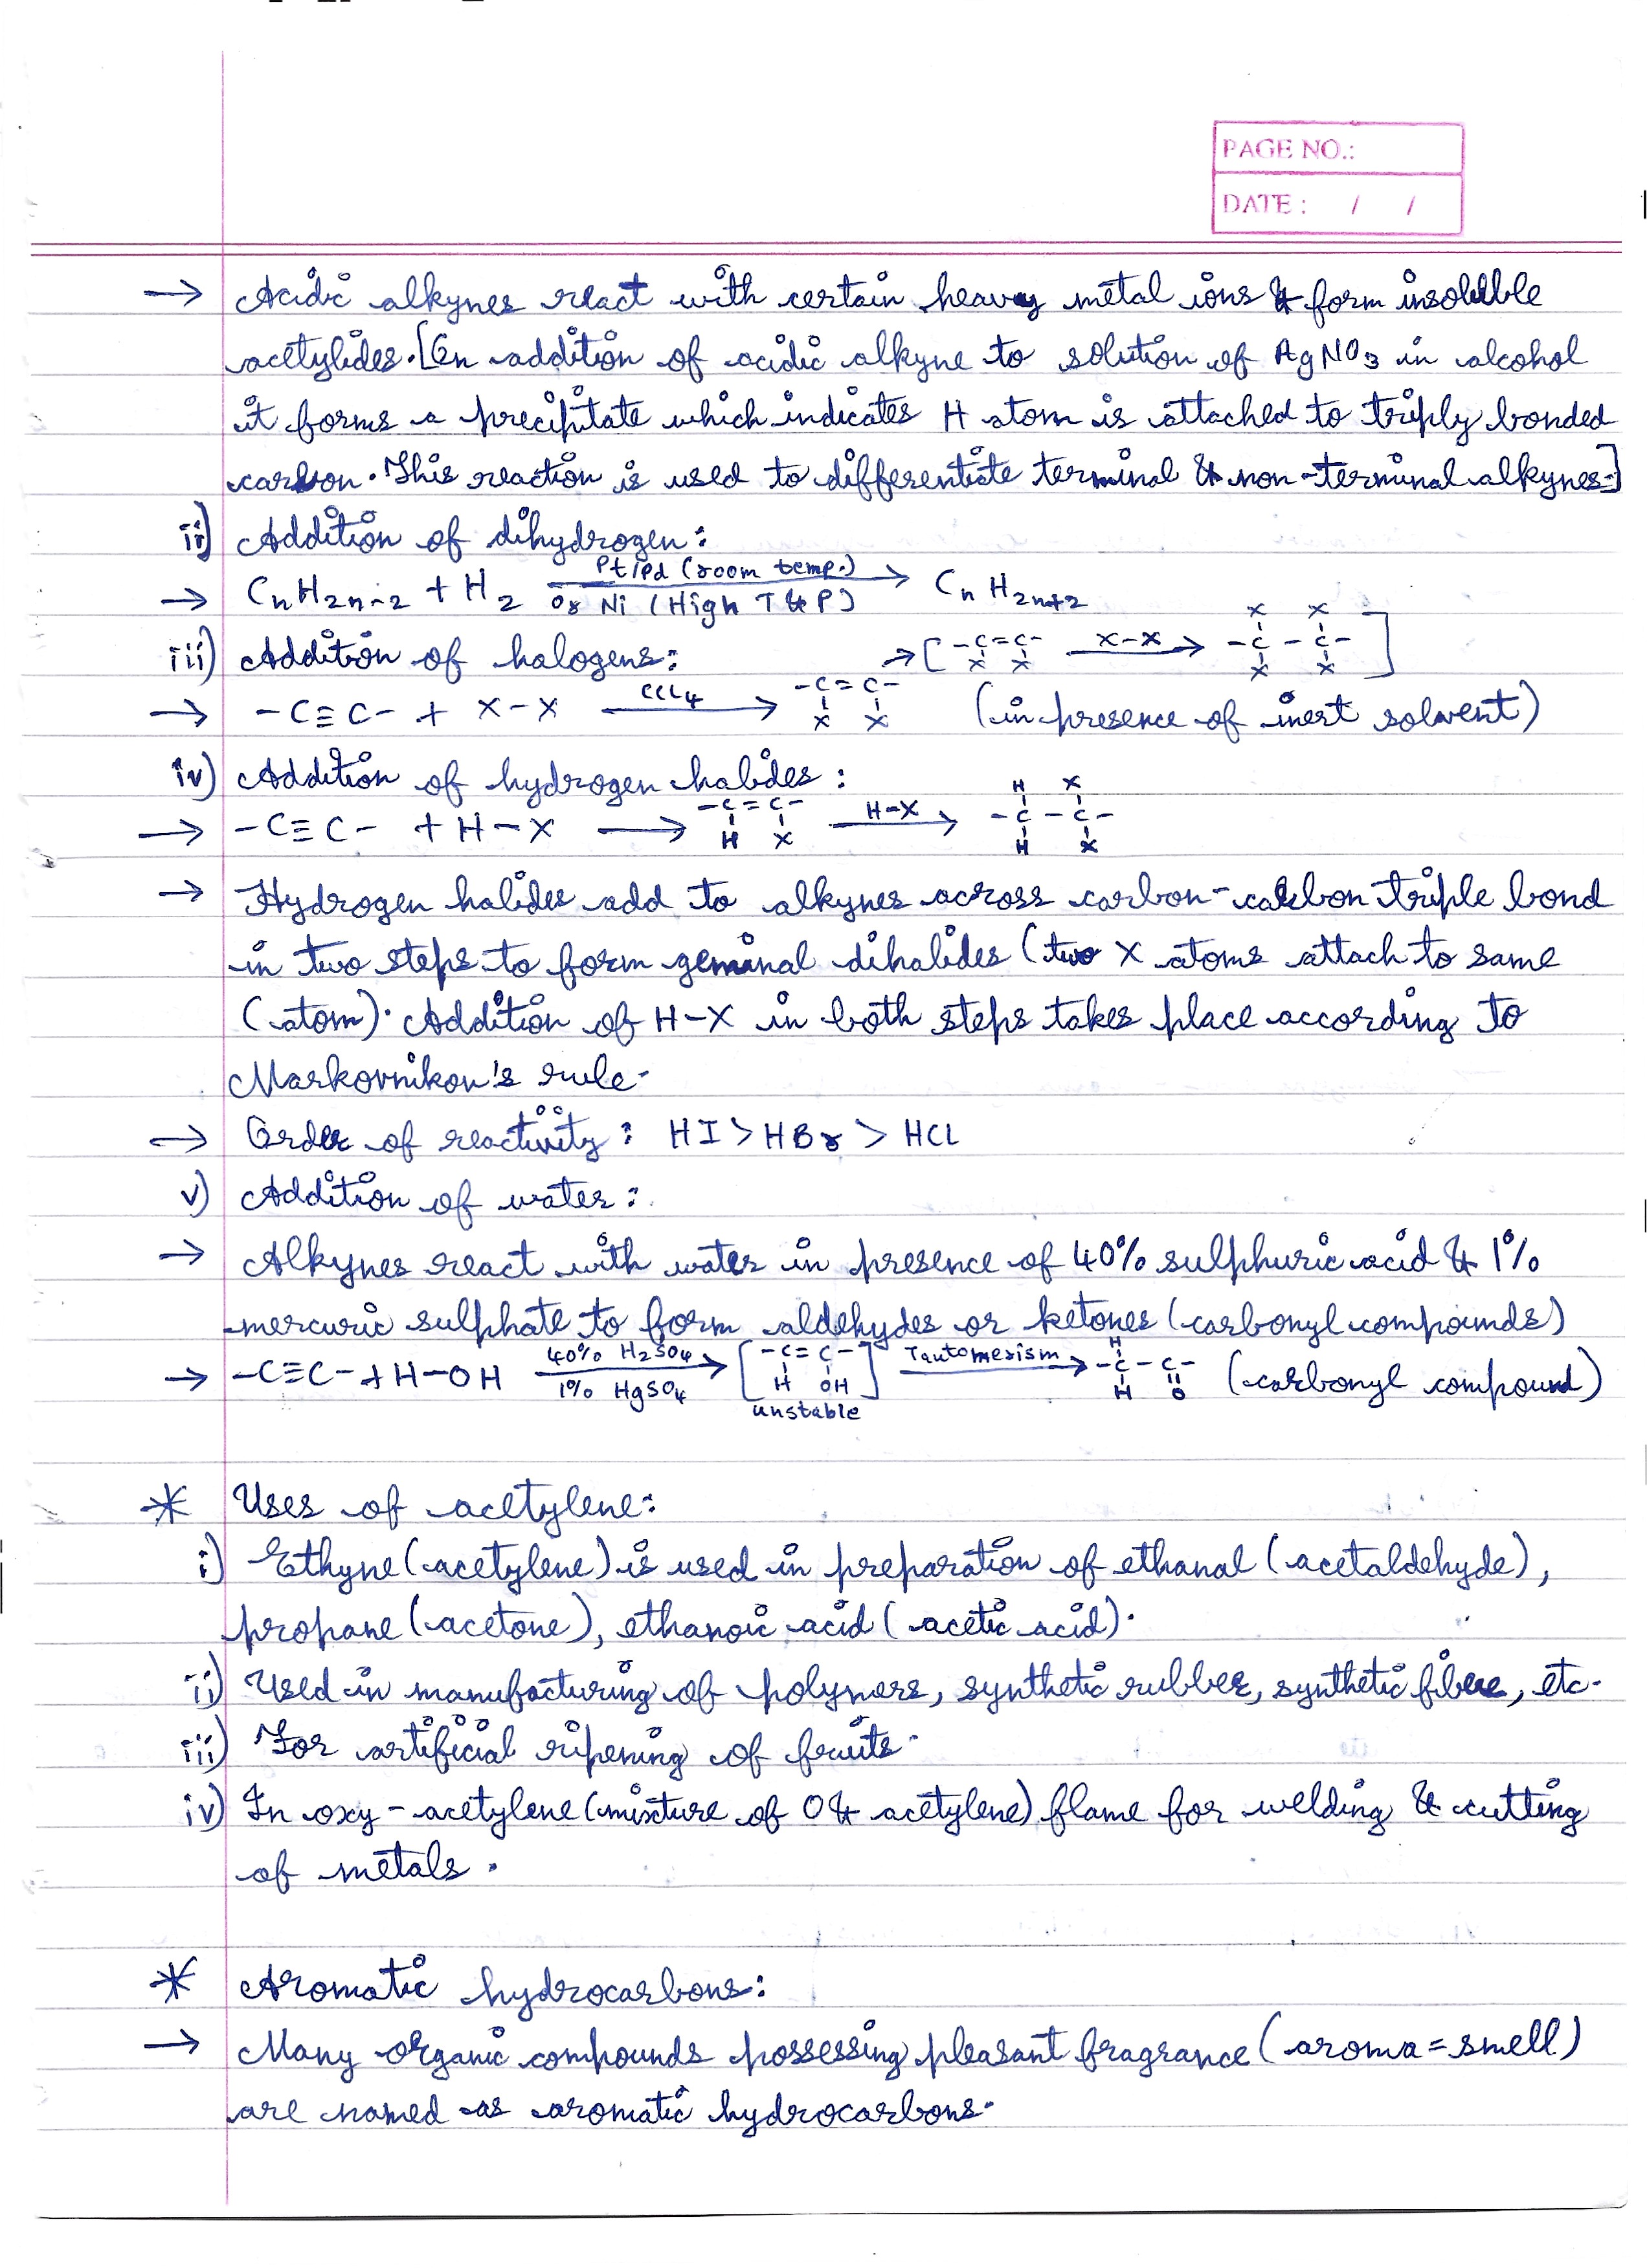 PAGE NO.:
DATE : / /
→ Acidic alkynes react with certain heavy metal ions & form insoluble
acetylides. [On addition of acidic alkyne to solution of AgNO3 in alcohol
it forms a precipitate which indicates H atom is attached to triply bonded
carbon. This reaction is used to differentiate terminal & non-terminal alkynes.]
ii) Addition of dihydrogen:
Pt/Pd (room temp.)
→ CnH2n-2 + H2 ⟶ CnH2n+2
Or Ni (High T & P)
X X
iii) Addition of halogens: → [ -C=C- X-X ⟶ -C-C- ]
X X X X
→ -C≡C- + X-X CCl4 ⟶ -C=C- (in presence of inert solvent)
X X
iv) Addition of hydrogen halides :
H X
→ -C≡C- + H-X ⟶ -C=C- H-X ⟶ -C-C-
H X H X
→ Hydrogen halides add to alkynes across carbon-carbon triple bond
in two steps to form geminal dihalides (two X atoms attach to same
(atom). Addition of H-X in both steps takes place according to
Markovnikov's rule.
→ Order of reactivity : HI > HBr > HCl
v) Addition of water :
→ Alkynes react with water in presence of 40% sulphuric acid & 1%
mercuric sulphate to form aldehydes or ketones (carbonyl compounds)
40% H2SO4 H
→ -C≡C- + H-OH ⟶ [ -C=C- ] Tautomerism ⟶ -C-C- (carbonyl compound)
1% HgSO4 H OH H O
unstable
* Uses of acetylene:
i) Ethyne (acetylene) is used in preparation of ethanal (acetaldehyde),
propane (acetone), ethanoic acid (acetic acid).
ii) Used in manufacturing of polymers, synthetic rubber, synthetic fibre, etc.
iii) For artificial ripening of fruits.
iv) In oxy-acetylene (mixture of O & acetylene) flame for welding & cutting
of metals.
* Aromatic hydrocarbons:
→ Many organic compounds possessing pleasant fragrance (aroma = smell)
are named as aromatic hydrocarbons.